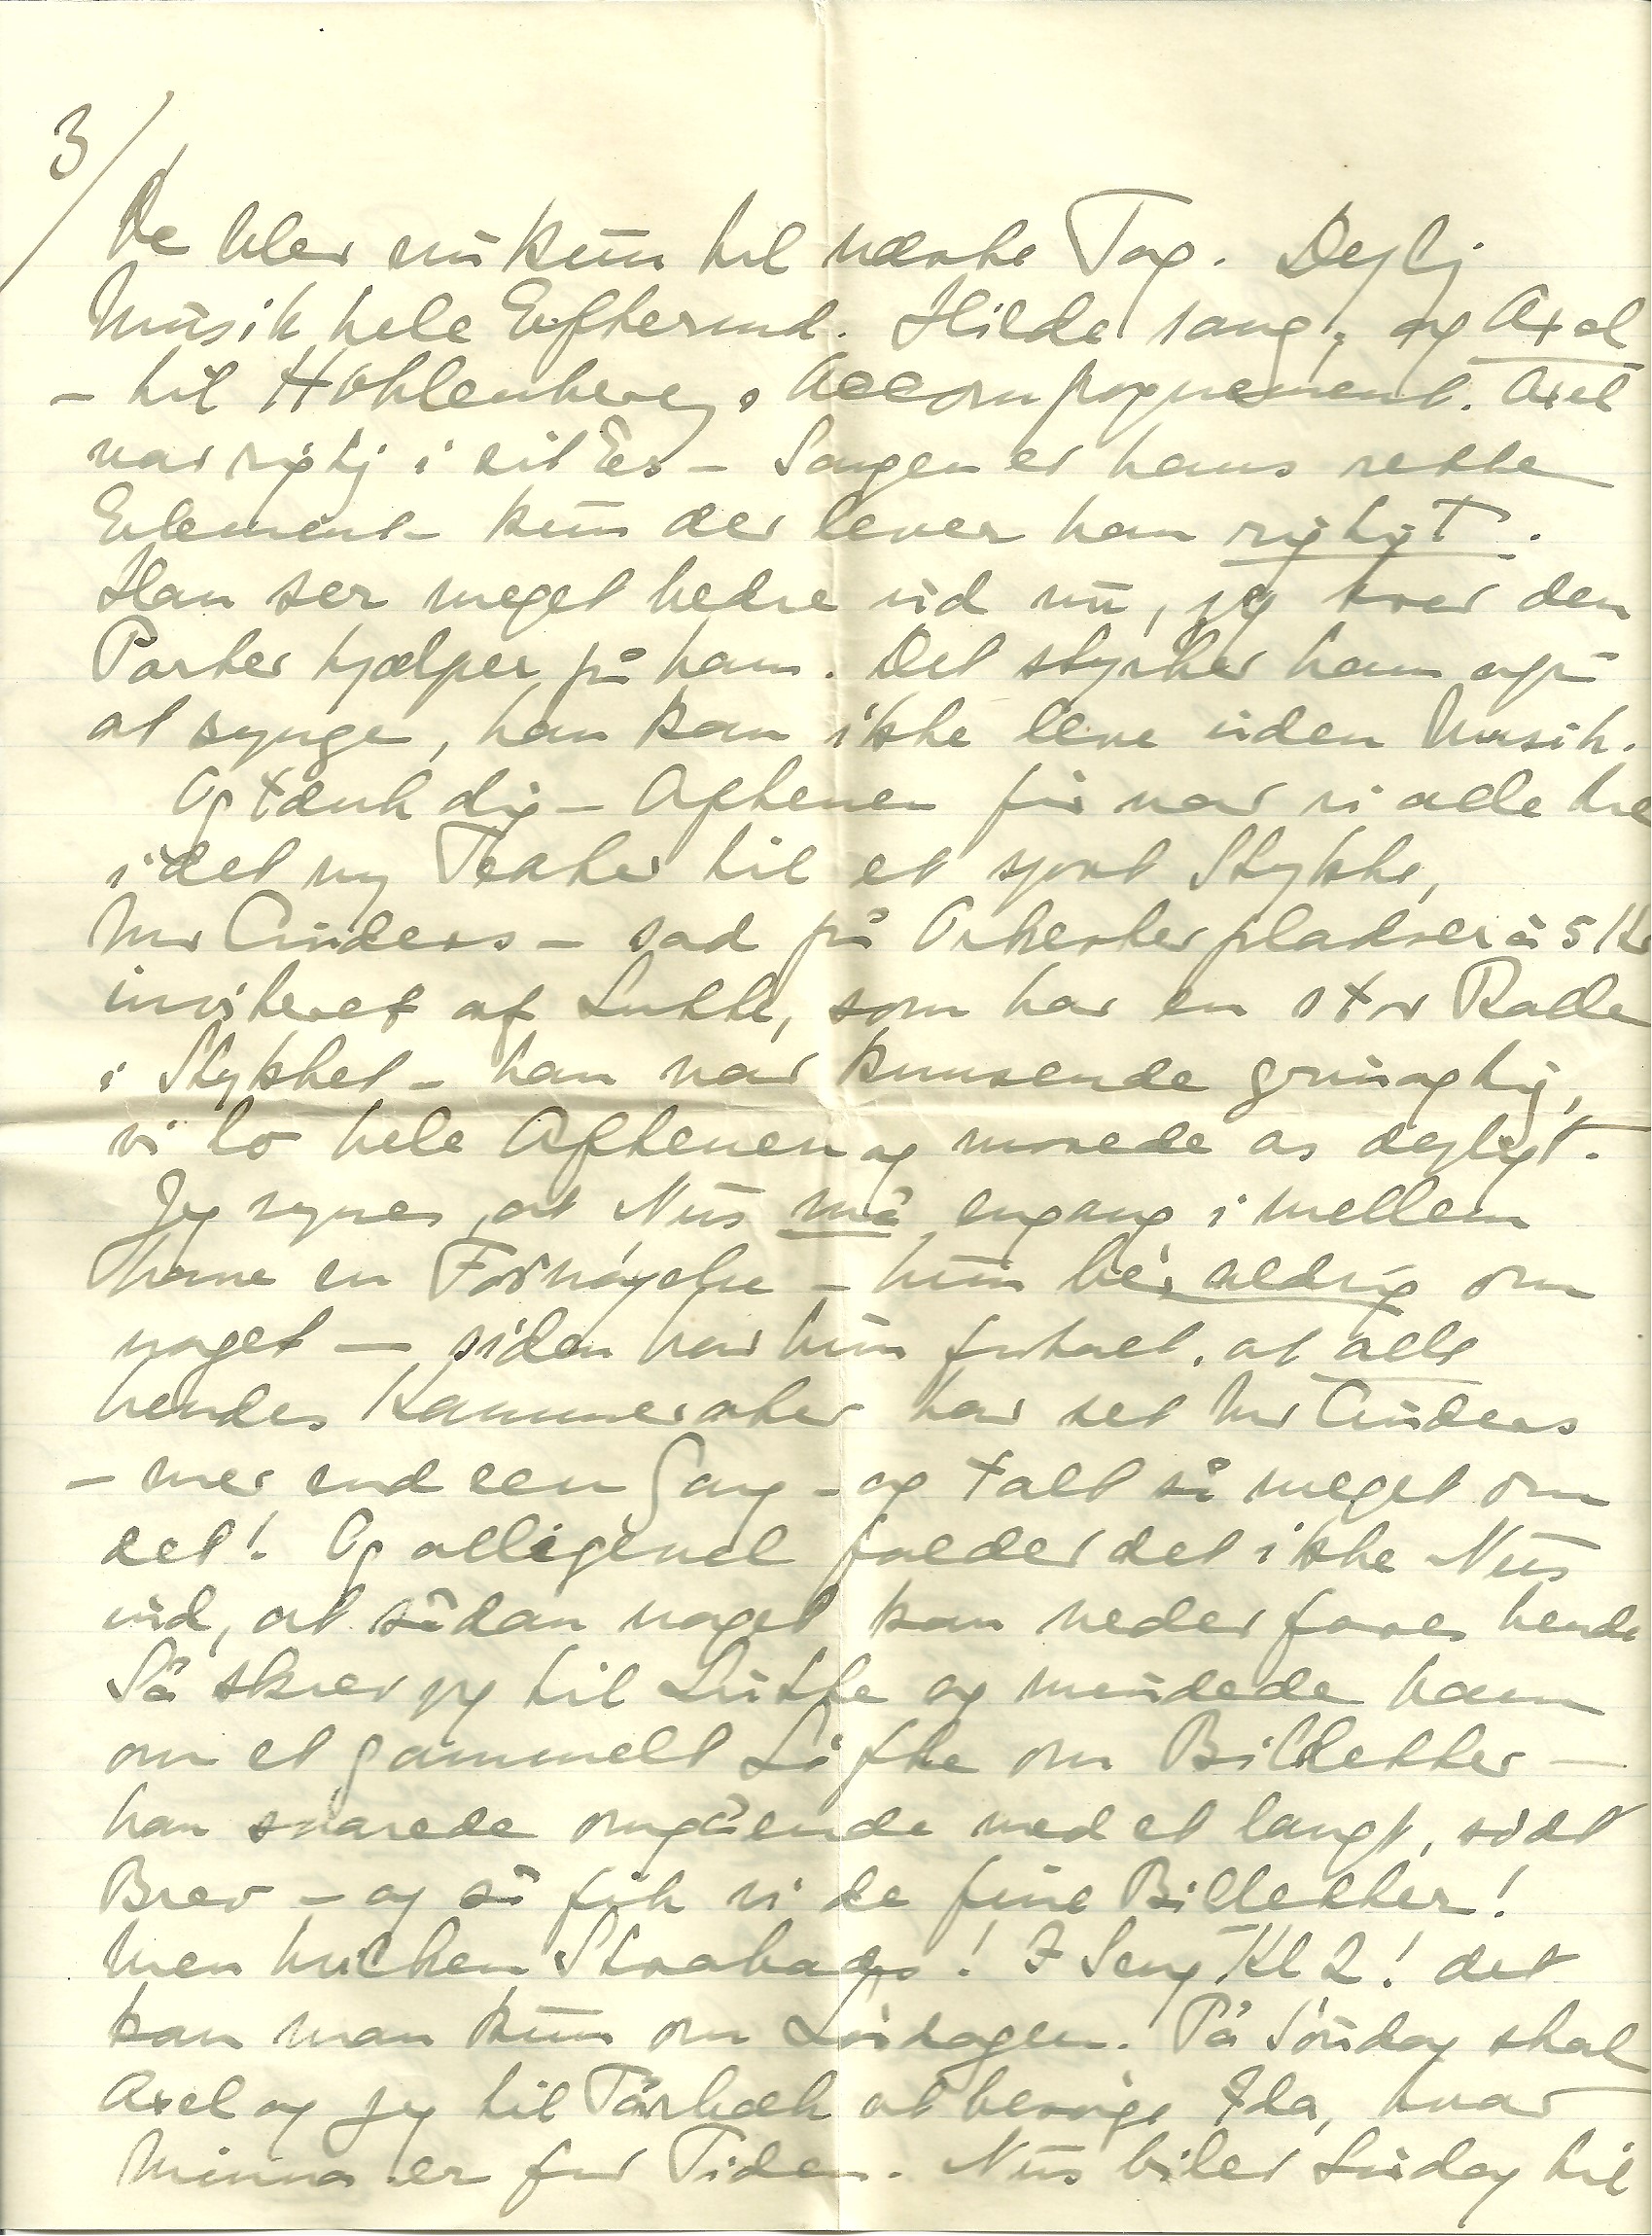 3/
De blev nu kun til næste Tog. Dejlig
Musik hele Eftermd. Hilde sang, og Axel
– til Hohlenbergs Accompagnement. Axel
var rigtig i sit Es – Sangen er hans rette
Element – kun der lever han rigtigt.
Han ser meget bedre ud nu, jeg tror den
Porter hjælper på ham. Det styrker ham også
at synge, han kan ikke leve uden Musik.
Og tænk dig – Aftenen før var vi alle tre
i det ny Teater til et sjovt Stykke,
Mr Cinders – sad på Orkesterpladser à 5 Kr
inviteret af Lutte, som har en stor Rolle
i Stykket – han var knusende grinagtig,
vi lo hele Aftenen og morede os dejligt.
Jeg synes, at Nus må engang i mellem
have en Fornøjelse – hun be'r aldrig om
noget – siden har hun fortalt, at alle
hendes Kammerater har set Mr Cinders
– mer end een Gang – og talt så meget om
det! Og alligevel falder det ikke Nus
ind, at sådan noget kan vederfares hende
Så skrev jeg til Lutte og mindede ham
om et gammelt Løfte om Billetter –
han svarede omgående med et langt, sødt
Brev – og så fik vi de fine Billetter!
Men hvilken Strabads! I Seng Kl 2! det
kan man kun om Lørdagen. På Søndag skal
Axel og jeg til Tårbæk at besøge Ida, hvor
Minna er for Tiden. Nus biler Lørdag til